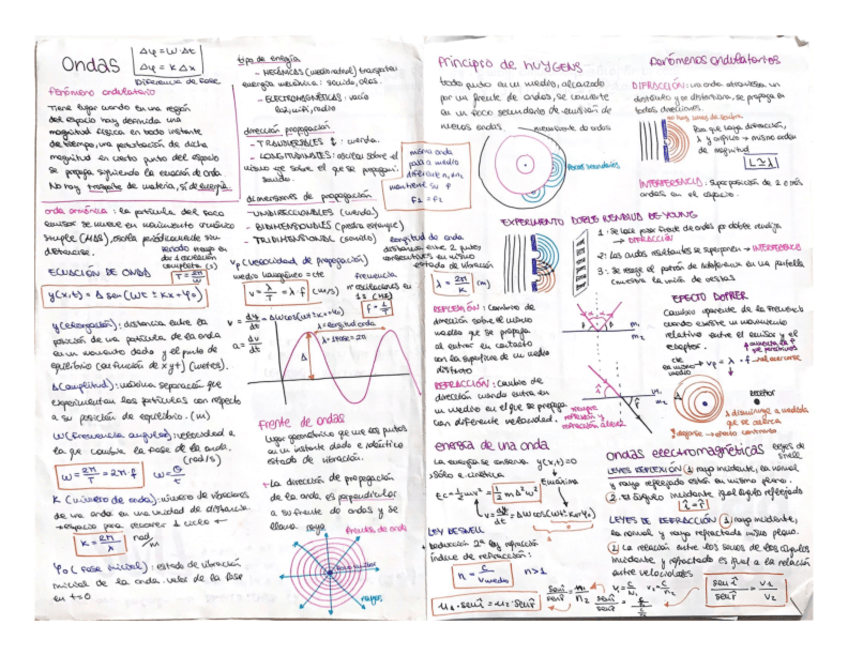 Ondas
Δφ = W·Δt
Δφ = K Δx
Diferencia de fase
fenómeno ondulatorio
Tiene lugar cuando en una región
del espacio hay definida una
magnitud física en todo instante
de tiempo, una perturbación de dicha
magnitud en cierto punto del espacio
se propaga siguiendo la ecuación de onda.
No hay trasporte de materia, sí de energía.
onda armónica: la partícula del foco
emisor se mueve en movimiento armónico
simple (MAS), oscila periódicamente sin
detenerse.
Periodo
completa (s)
T = 2π/W
ECUACIÓN DE ONDA
y(x,t) = A sen(Wt ± Kx + φ₀)
y (elongación): distancia entre la
posición de una partícula de la onda
en un momento dado y el punto de
equilibrio (en función de x y t) (metros).
A (amplitud): máxima separación que
experimentan las partículas con respecto
a su posición de equilibrio. (m)
W (frecuencia angular): velocidad a
la que cambia la fase de la onda.
(rad/s)
W = 2π/T = 2π·f
W = θ/t
K (número de onda): número de vibraciones
de una onda en una unidad de distancia
→ espacio para recorrer 1 ciclo ←
K = 2π/λ rad/m
φ₀ (fase inicial): estado de vibración
inicial de la onda. valor de la fase
en t=0
tipos de energía
- MECÁNICAS (medio material) transportan
energía mecánica: sonido, olas.
- ELECTROMAGNÉTICAS: vacío
luz, wifi, radio
dirección propagación
- TRANSVERSALES ↕: cuerda.
- LONGITUDINALES: oscilan sobre el
mismo eje sobre el que se propagan:
sonido.
misma onda
pasa a medio
diferente n₁ a n₂
mantiene su f
f₁ = f₂
dimensiones de propagación
- UNIDIRECCIONALES (cuerda)
- BIDIMENSIONALES (piedra estanque)
- TRIDIMENSIONAL (sonido)
longitud de onda
distancia entre 2 puntos
consecutivos en mismo
estado de vibración
λ = 2π/K (m)
vp (velocidad de propagación)
medio homogéneo = cte
v = λ/T = λ·f (m/s)
frecuencia
nº oscilaciones en
1s (Hz)
f = 1/T
v = dy/dt = AW cos(Wt ± Kx + φ₀)
a = dv/dt
λ = longitud onda
λ = 1 fase = 2π
A
Frente de ondas
Lugar geométrico que une los puntos
en un instante dado e idéntico
estado de vibración.
→ La dirección de propagación
de la onda es perpendicular
a su frente de ondas y se
llama rayo
frente de onda
rayos
Principio de HUYGENS
todo punto en un medio, alcanzado
por un frente de ondas, se convierte
en un foco secundario de emisión de
nuevas ondas.
nuevo frente de ondas
focos secundarios
Fenómenos ondulatorios
DIFRACCIÓN: una onda atraviesa un
obstáculo y se distorsiona, se propaga en
todas direcciones.
Para que haya difracción,
λ y orificio → mismo orden
de magnitud
L ≃ λ
INTERFERENCIA: superposición de 2 o más
ondas en el espacio.
EXPERIMENTO DOBLE RENDIJA DE YOUNG
1: Se hace pasar frente de ondas por doble rendija
→ DIFRACCIÓN
2: Las ondas resultantes se superponen → INTERFERENCIA
3: Se recoge el patrón de interferencia en una pantalla
REFLEXIÓN: Cambio de
dirección sobre el mismo
medio que se propaga
al entrar en contacto
con la superficie de un medio
distinto
REFRACCIÓN: Cambio de
dirección cuando entra en
un medio en el que se propaga
con diferente velocidad.
siempre
reflexión y
refracción a la vez
m₁
m₂
EFECTO DOPPLER
Cambio aparente de la frecuencia
cuando existe un movimiento
relativo entre el emisor y el
receptor.
cte
en mismo → vp = λ · f
medio
receptor
λ disminuye a medida
que se acerca
Alejarse → efecto contrario
energía de una onda
La energía se conserva
sólo e. cinética
y(x,t)=0
E máxima
Ec = ½mv² = ½mA²W²
v = dy/dt = AW cos(Wt ± Kx + φ₀)
LEY DE SNELL
deducción 2ª ley refracción
índice de refracción:
n = c/v medio
n>1
n₁·sen î = n₂·sen r̂
sen î/sen r̂ = n₂/n₁
ondas electromagnéticas
leyes de
snell
LEYES REFLEXIÓN 1 rayo incidente, la normal
y rayo reflejado están en mismo plano.
2. el ángulo incidente igual ángulo reflejado
î = r̂
LEYES DE REFRACCIÓN 1 rayo incidente,
la normal y rayo refractado mismo plano.
2 La relación entre los senos de los ángulos
incidente y refractado es igual a la relación
entre velocidades
sen î/sen r̂ = v₁/v₂